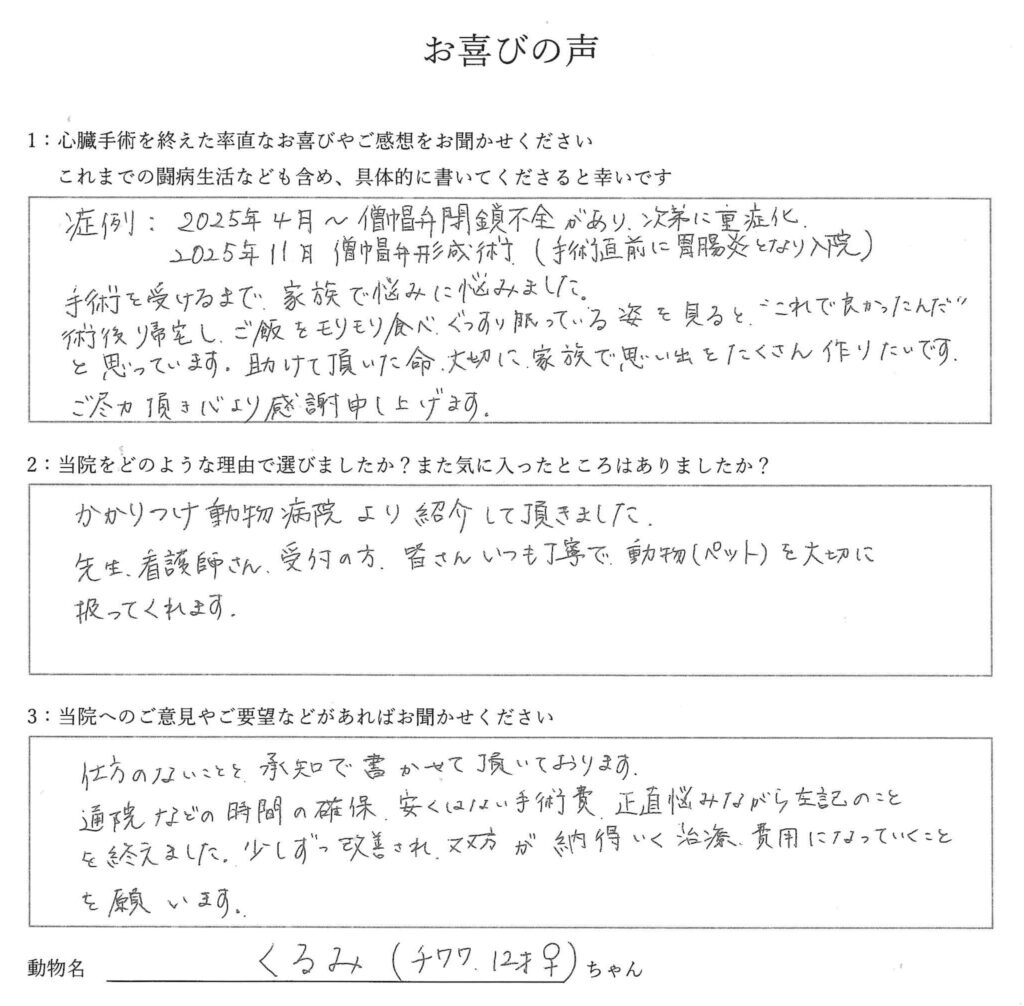 お喜びの声
1：心臓手術を終えた率直なお喜びやご感想をお聞かせください
これまでの闘病生活なども含め、具体的に書いてくださると幸いです
症例： 2025年4月～僧帽弁閉鎖不全があり、次第に重症化、
2025年11月 僧帽弁形成術 (手術直前に胃腸炎となり入院)
手術を受けるまで、家族で悩みに悩みました。
術後帰宅し、ご飯をモリモリ食べ、ぐっすり眠っている姿を見ると、"これで良かったんだ"
と思っています。助けて頂いた命、大切に、家族で思い出をたくさん作りたいです。
ご尽力頂き心より感謝申し上げます。
2：当院をどのような理由で選びましたか？また気に入ったところはありましたか？
かかりつけ動物病院より紹介して頂きました。
先生、看護師さん、受付の方、皆さんいつも丁寧で、動物(ペット)を大切に
扱ってくれます。
3：当院へのご意見やご要望などがあればお聞かせください
仕方のないことを承知で書かせて頂いております。
通院などの時間の確保、安くはない手術費、正直悩みながら左記のこと
を終えました。少しずつ改善され、双方が納得いく治療、費用になっていくこと
を願います。
動物名 くるみ(チワワ、12才♀)ちゃん